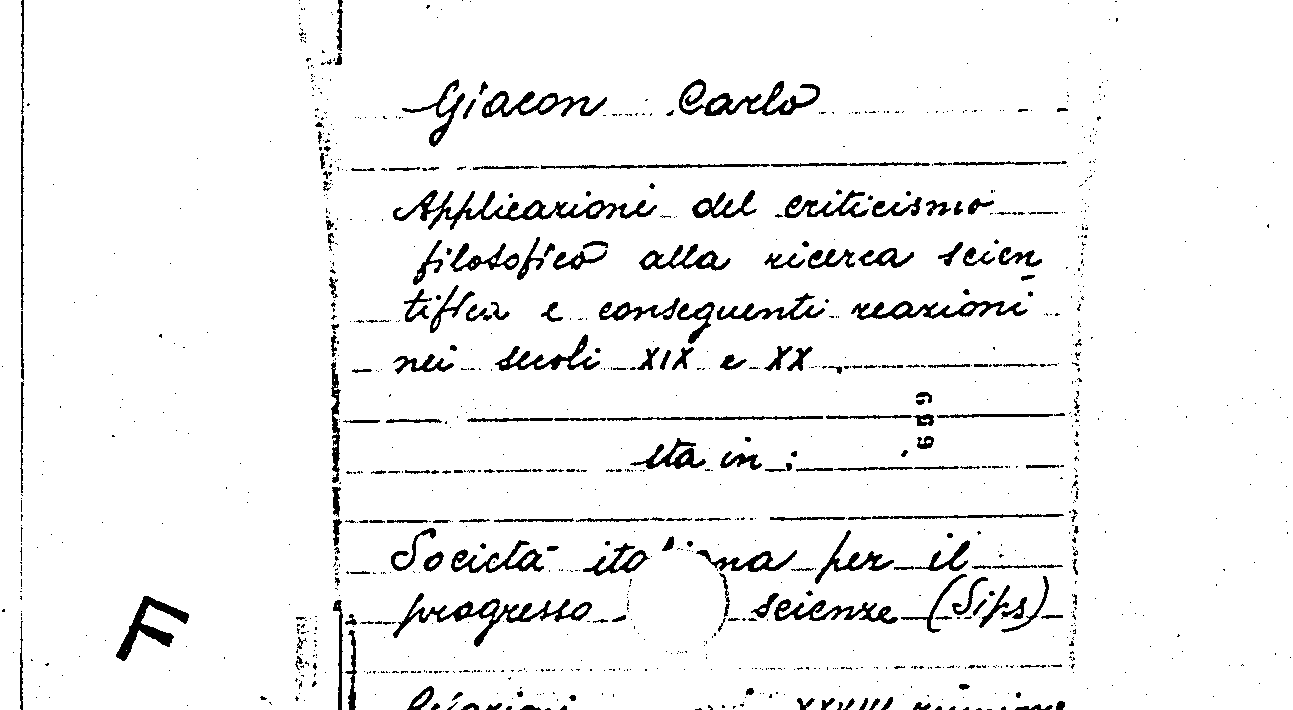 Giacon Carlo
Applicazioni del criticismo
filosofico alla ricerca scien
tifica e conseguenti reazioni
nei secoli XIX e XX.
659
sta in:
Società italiana per il
progresso scienze (Sips)
Relazioni XXXIII riunione
F